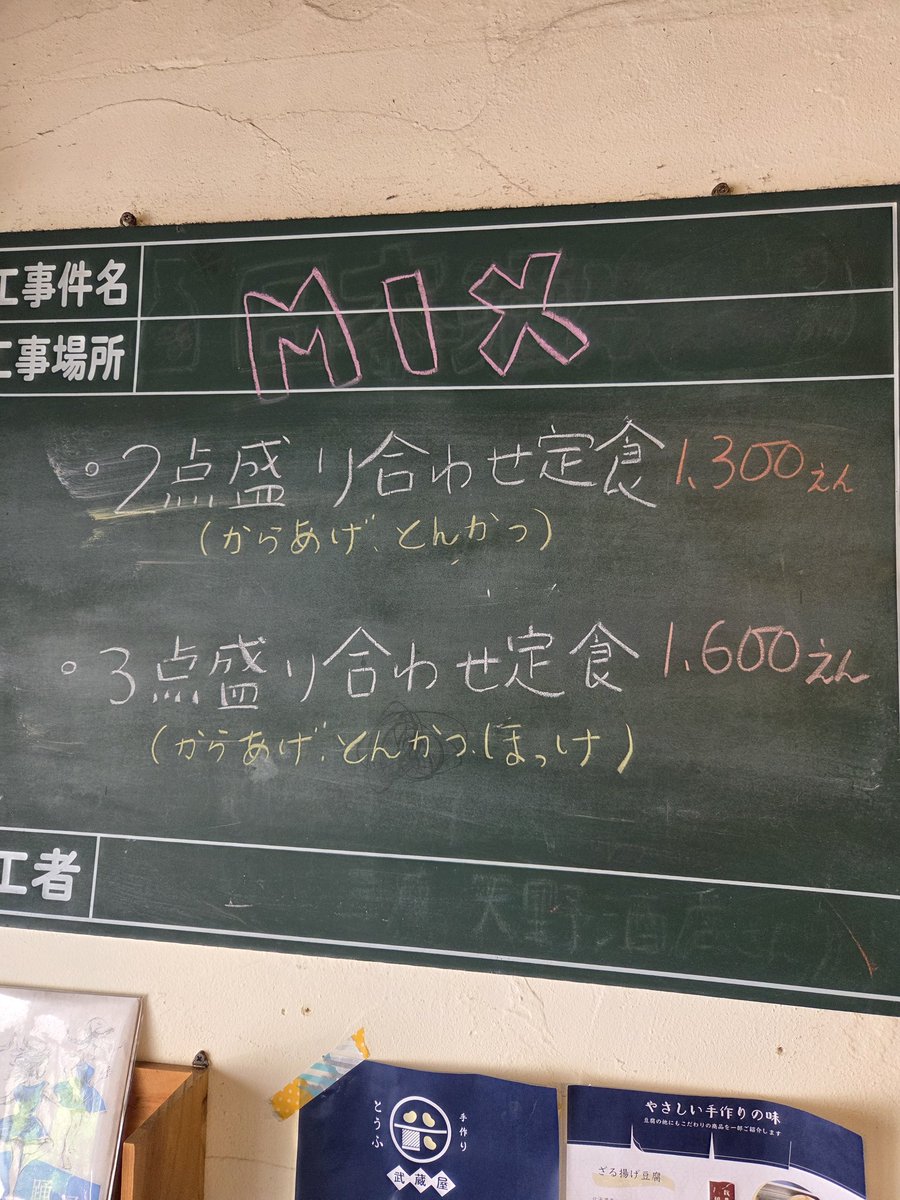 工事件名
MIX
工事場所
○2点盛り合わせ定食 1.300えん
(からあげ、とんかつ)
○3点盛り合わせ定食 1.600えん
(からあげ、とんかつ、ほっけ)
工者
手作り
とうふ
武蔵屋
やさしい手作りの味
豆腐の他にもこだわりの商品を一部ご紹介します
ざる揚げ豆腐